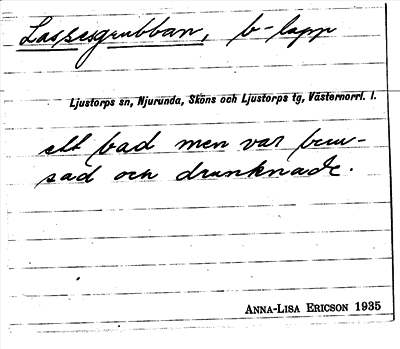 Lassesgrubban, b-lapp
Ljustorps sn, Njurunda, Sköns och Ljustorps tg, Västernorrl. l.
ett bad men var beru-
sad och drunknade.
ANNA-LISA ERICSON 1935